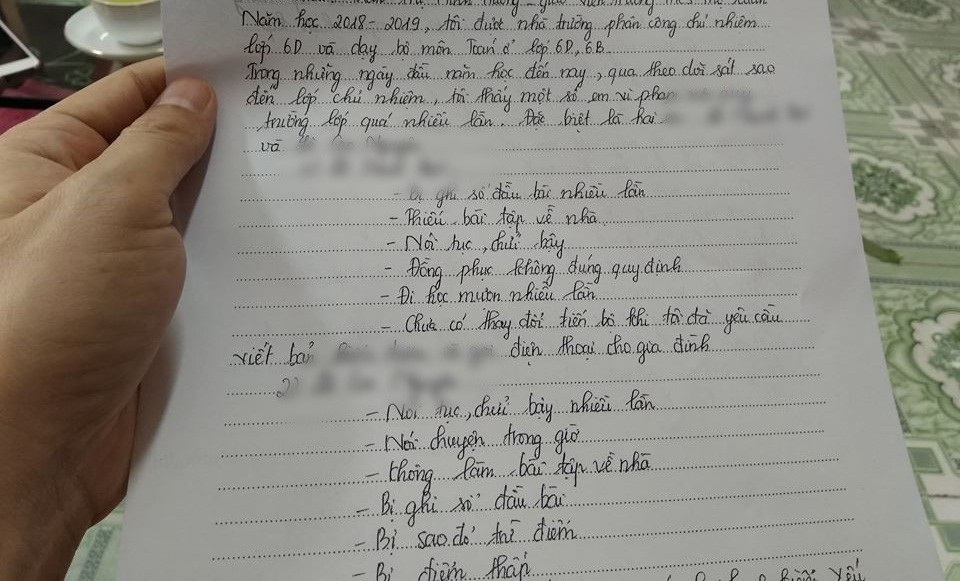 Năm học 2018-2019, tôi được nhà trường phân công chủ nhiệm
lớp 6D và dạy bộ môn Toán ở lớp 6D, 6B.
Trong những ngày đầu năm học đến nay, qua theo dõi sát sao
đến lớp chủ nhiệm, tôi thấy một số em vi phạm
trường lớp quá nhiều lần. Đặc biệt là hai
và
- Bị ghi sổ đầu bài nhiều lần
- Thiếu bài tập về nhà
- Nói tục, chửi bậy
- Đồng phục không đúng quy định
- Đi học muộn nhiều lần
- Chưa có thay đổi tiến bộ khi tôi đã yêu cầu
viết bản điện thoại cho gia đình
2)
- Nói tục, chửi bậy nhiều lần
- Nói chuyện trong giờ
- Không làm bài tập về nhà
- Bị ghi sổ đầu bài
- Bị sao đỏ trừ điểm
- Bị điểm thấp